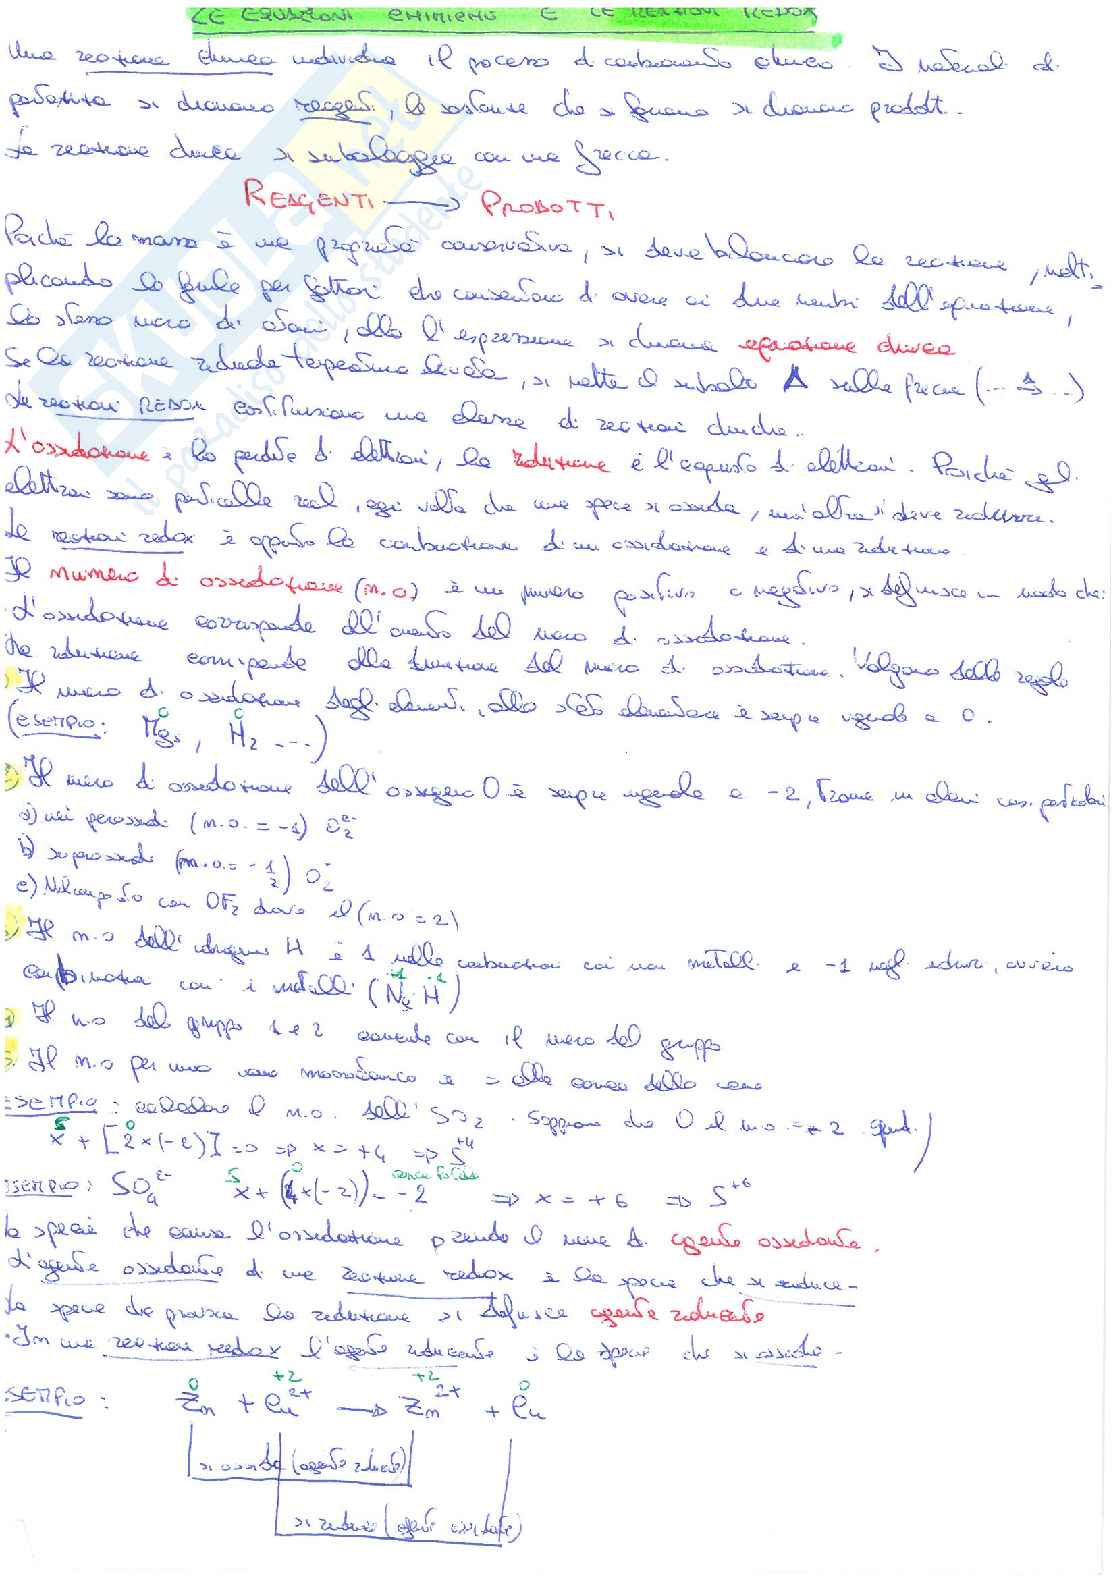 LE EQUAZIONI CHIMICHE E LE REAZIONI REDOX
Una reazione chimica individua il processo di cambiamento chimico. I materiali di
partenza si chiamano reagenti, le sostanze che si formano si chiamano prodotti.
La reazione chimica si simboleggia con una freccia.
REAGENTI → PRODOTTI
Poiché la massa è una proprietà conservativa, si deve bilanciare la reazione, molti-
plicando le formule per fattori che consentano di avere ai due membri dell'equazione,
lo stesso numero di atomi, allora l'espressione si chiama equazione chimica
Se la reazione richiede temperatura elevata, si mette il simbolo Δ sulla freccia (... Δ→ ...)
Le reazioni REDOX costituiscono una classe di reazioni chimiche.
L'ossidazione è la perdita di elettroni, la riduzione è l'acquisto di elettroni. Poiché gli
elettroni sono particelle reali, ogni volta che una specie si ossida, un'altra si deve ridurre.
Le reazioni redox è appunto la combinazione di un ossidazione e di una riduzione.
Il numero di ossidazione (n.o) è un numero positivo o negativo, si definisce in modo che:
L'ossidazione corrisponde all'aumento del numero di ossidazione.
La riduzione corrisponde alla diminuzione del numero di ossidazione. Valgono delle regole
Il numero di ossidazione degli elementi, allo stato elementare è sempre uguale a 0.
(ESEMPIO: Mg, H2 ...)
0 0
Il numero di ossidazione dell'ossigeno O è sempre uguale a -2, tranne in alcuni casi particolari
a) nei perossidi (n.o. = -1) O2 2-
b) superossidi (n.o. = - 1/2) O2 -
c) Nel composto con OF2 dove il (n.o = 2)
Il n.o dell'idrogeno H è 1 nelle combinazioni con non metalli e -1 negli idruri, ovvero
combinazioni con i metalli (Na H)
+1 -1
Il n.o del gruppo 1 e 2 coincide con il numero del gruppo
Il n.o per uno ione monoatomico è = alla carica dello ione
ESEMPIO: calcolare il n.o. dell'SO2. Sappiamo che O il n.o. = -2 quindi)
S O
x + [2×(-2)] => => x = +4 => S+4
ESEMPIO: SO4 2- x + (4×(-2)) = -2 => x = +6 => S+6
S O carica totale
la specie che causa l'ossidazione prende il nome di agente ossidante.
L'agente ossidante di una reazione redox è la specie che si riduce-
La specie che provoca la riduzione si definisce agente riducente
In una reazioni redox l'agente riducente è la specie che si ossida-
0 +2 +2 0
ESEMPIO: Zn + Cu2+ → Zn2+ + Cu
si ossida (agente riducente)
si riduce (agente ossidante)
SKUOLA.net
il paradiso dello studente